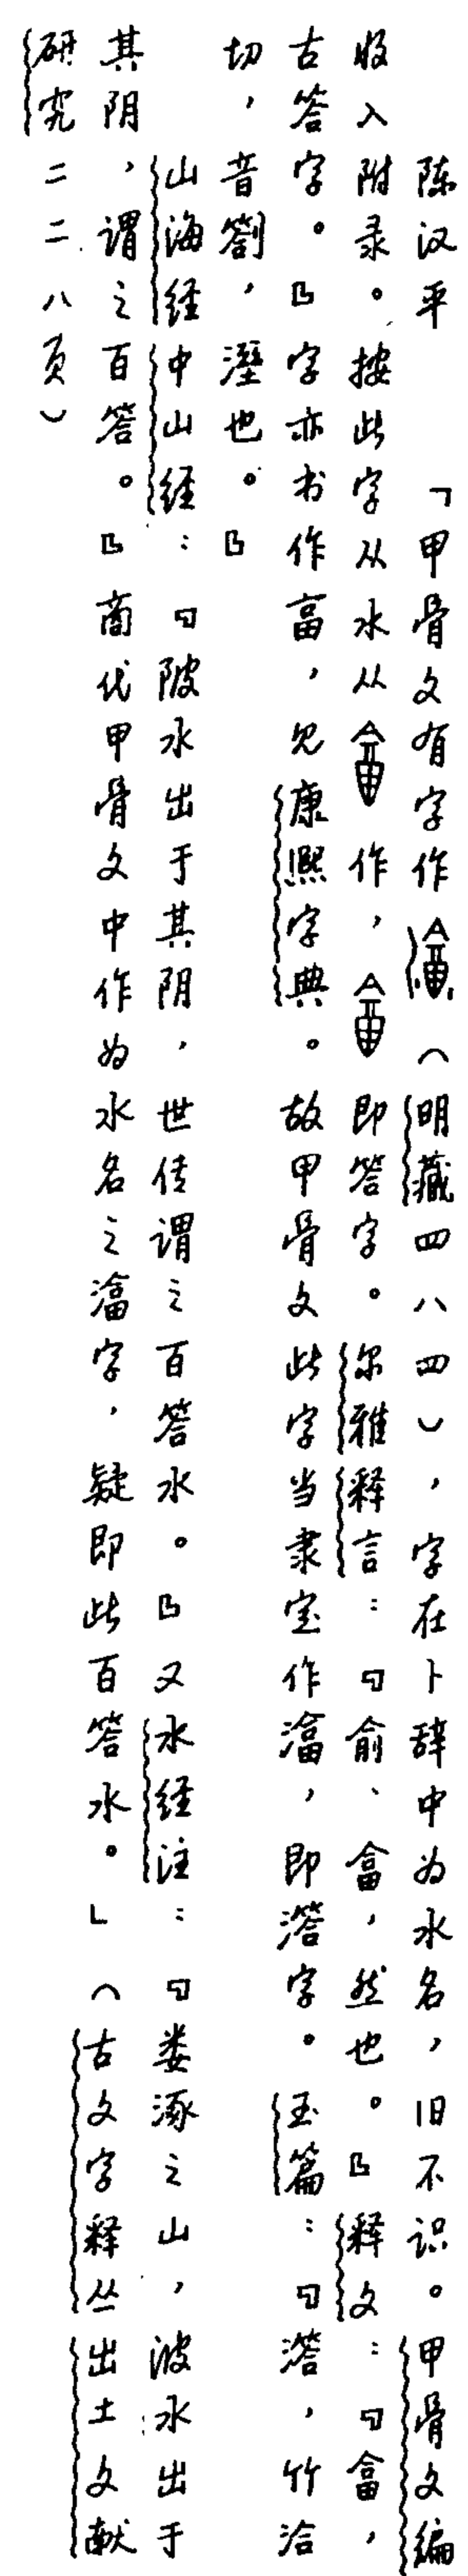 陈汉平 「甲骨文有字作(明藏四八四),字在卜辞中为水名,旧不识。甲骨文编
收入附录。按此字从水从作,即答字。尔雅释言:『俞、畣,然也。』释文:『畣,
古答字。』字亦书作畗,见康熙字典。故甲骨文此字当隶定作,即溚字。玉篇:『溚,竹洽
切,音劄,溼也。』
山海经中山经:『陂水出于其阴,世传谓之百答水。』又水经注:『娄涿之山,波水出于
其阴,谓之百答。』商代甲骨文中作为水名之字,疑即此百答水。」(古文字释丛出土文献
研究二二八页)